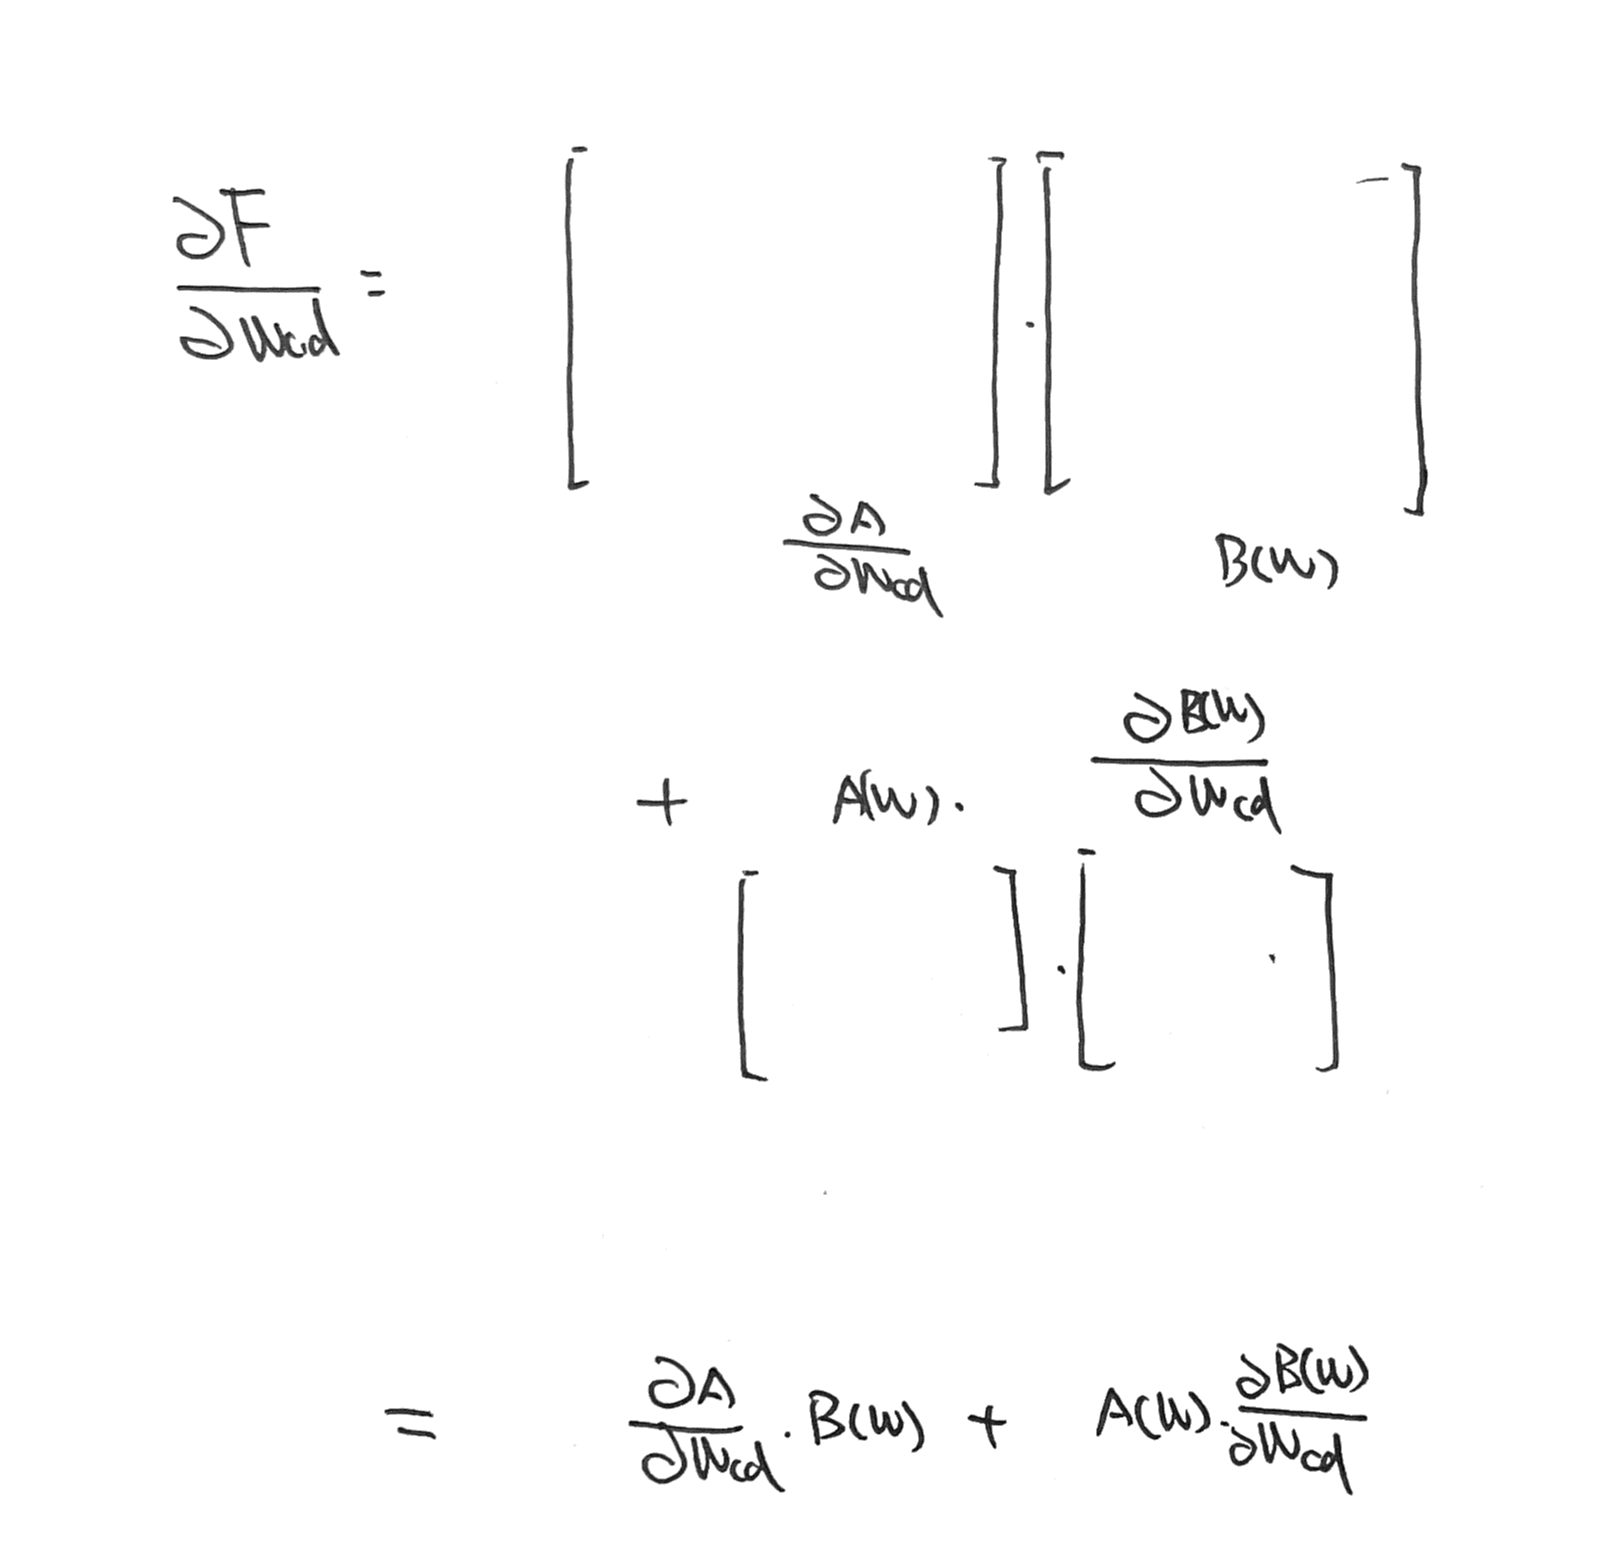 ∂F/∂Wcd = [ ] · [ ]
∂A/∂Wcd B(W)
+ A(W) · ∂B(W)/∂Wcd
[ ] · [ ]
= ∂A/∂Wcd · B(W) + A(W) · ∂B(W)/∂Wcd